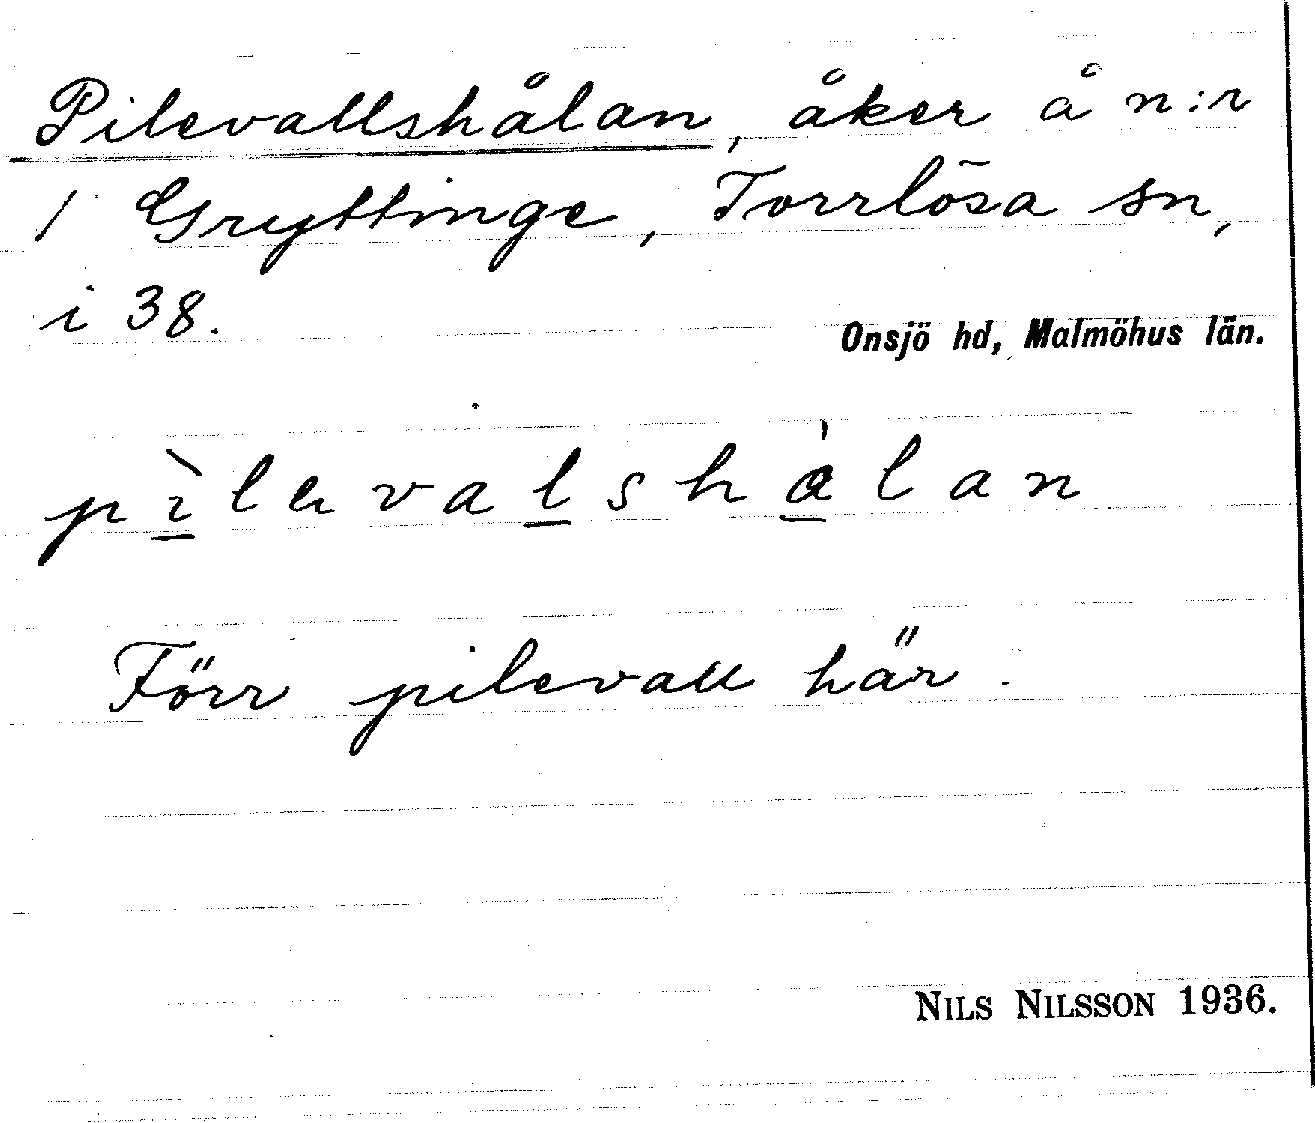 Pilevallshålan, åker å n:r
1 Gryttinge, Torrlösa sn,
i 38.
Onsjö hd, Malmöhus län.
pìlevalshålan
Förr pilevall här.
NILS NILSSON 1936.